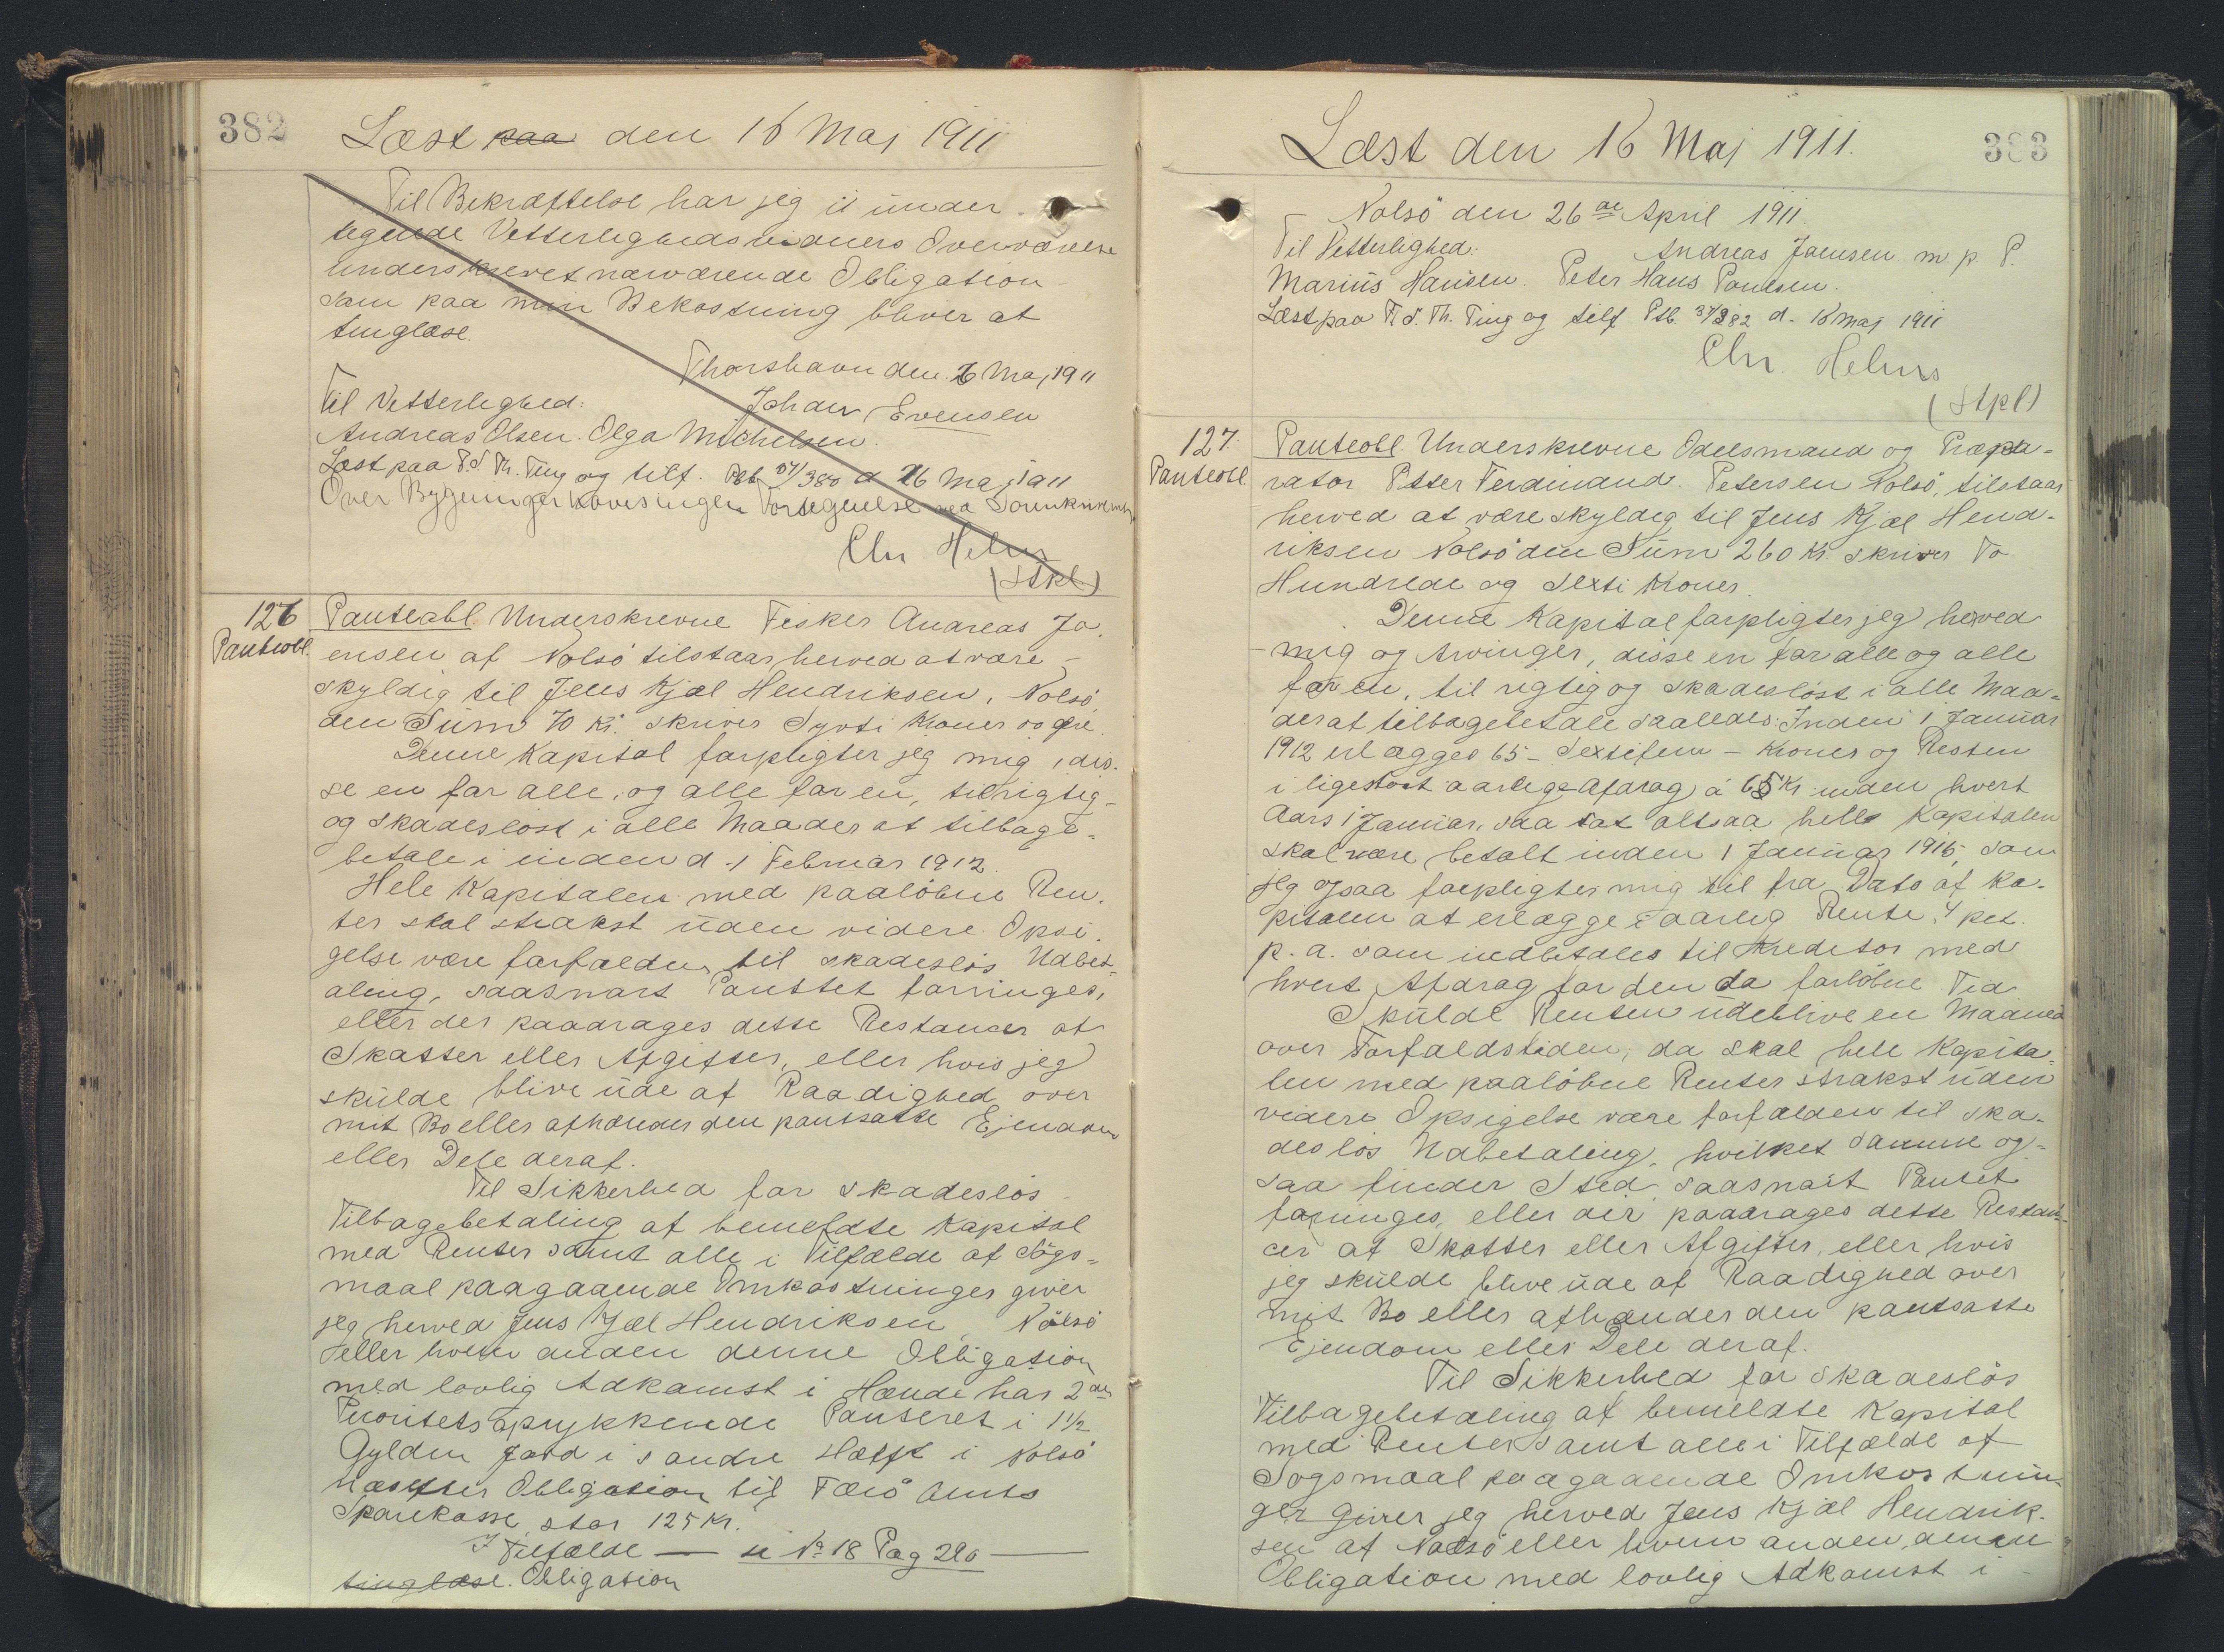 382
Læst paa den 16 Maj 1911
Til Bekræftelse har jeg it under
tegnede Vetterlighedsvidners Overværelse
underskrevet nærværende Obligation
som paa min Bekostning bliver at
tinglæse.
Thorshavn den 6 Maj 1911
Til Vetterlighed: Johan Evensen
Andreas Olsen. Olga Michelsen.
Læst paa F. S. Th. Ting og tilf. Ptb /380 d 16 Maj 1911
Over Bygninger
Chr Helms
(Stkl)
126 Panteobl Underskrevne Fisker Andreas Jo
Panteobl. ensen af Nolsö tilstaar herved at være
skyldig til Jens Kjæl Hendriksen, Nolsö,
den Süm 70 Kr. skriver Syvti Kroner 00 Øre.
Denne Kapital forpligter jeg mig, dis-
se en for alle, og alle for en, til rigtig
og skadeslöst i alle Maader at tilbage-
betale i inden d. 1 Februar 1912.
Hele Kapitalen med paalöbne Ren-
ter skal strakst üden videre Opsi-
gelse være forfalden til skadeslös Udbet-
aling, saasnart Panttet forringes,
eller der paadrages dette Restancer af
Skatter eller Afgifter, eller hvis jeg
skülde blive üde af Raadighed over
mit Bo eller afhænder den pantsatte Ejendom
eller Dele deraf.
Til Sikkerhed for skadeslös
Tilbagebetaling af bemeldte Kapital
med Renter samt alle i Tilfælde af Sögs-
maal paagaaende Omkostninger giver
jeg herved Jens Kjæl Hendriksen, Nölsö
eller hvem anden denne Obligation
med lovlig Adkomst i Hænde har 2den
Prioritets oprykkende Panteret i 1½
Gylden Jord i søndre Hæfte i Nolsö
næstefter Obligation til Færö Amts
Sparekasse stor 125 Kr.
I Tilfælde — se No 18 Pag 290 —
tinglæse. Obligation
Læst den 16 Maj 1911. 383
Nolsö den 26de April 1911.
Til Vetterlighed: Andreas Joensen m p P.
Mariüs Hansen. Peter Hans Poulsen.
Læst paa F. S. Th. Ting og tilf Ptb. 37/382 d. 16 Maj 1911
Chr. Helms
(Stpl)
127. Panteobl. Underskrevne Odelsmand og Præpa-
Panteobl rator Petter Ferdinand Petersen Nolsö, tilstaar
herved at være skyldig til Jens Kjæl Hend-
riksen Nolsö den Süm 260 Kr. skriver To
Hundrede og Sexti Kroner.
Denne Kapital forpligter jeg herved
mig og Arvinger, disse en for alle og alle
for en, til rigtig og skadeslöst i alle Maa-
der at tilbagebetale saaledes: Inden 1 Januar
1912 erlægges 65 - Sextifem - Kroner og Resten
i ligestort aarlige Afdrag á 65 Kr inden hvert
Aars 1 Januar, saa tat altsaa hele Kapitalen
skal være betalt inden 1 Januar 1915, som
jeg ogsaa forpligter mig til fra Dato af Ka-
pitalen at erlægge i aarlig Rente 4 pct.
p. a. som indbetales til Kreditor med
hvert Afdrag for den da forlöbne Tid
Skülde Renten üdeblive en Maaned
over Forfaldstiden, da skal hele Kapita-
len med paalöbne Renter strakst üden
videre Opsigelse være forfalden til ska-
deslös Udbetaling, hvilket samme og-
saa finder Sted, saasnart Pantet
foringes, eller der paadrages dette Restan-
cer af Skatter eller Afgifter, eller hvis
jeg skülde blive üde af Raadighed over
mit Bo eller afhænder den pantsatte
Ejendom eller Dele deraf.
Til Sikkerhed for skadeslös
Tilbagebetaling af bemeldte Kapital
med Renter samt alle i Tilfælde af
Sogsmaal paagaaende Omkostnin-
ger giver jeg herved Jens Kjæl Hendrik-
sen af Nolsö eller hvem anden denne
Obligation med lovlig Adkomst i